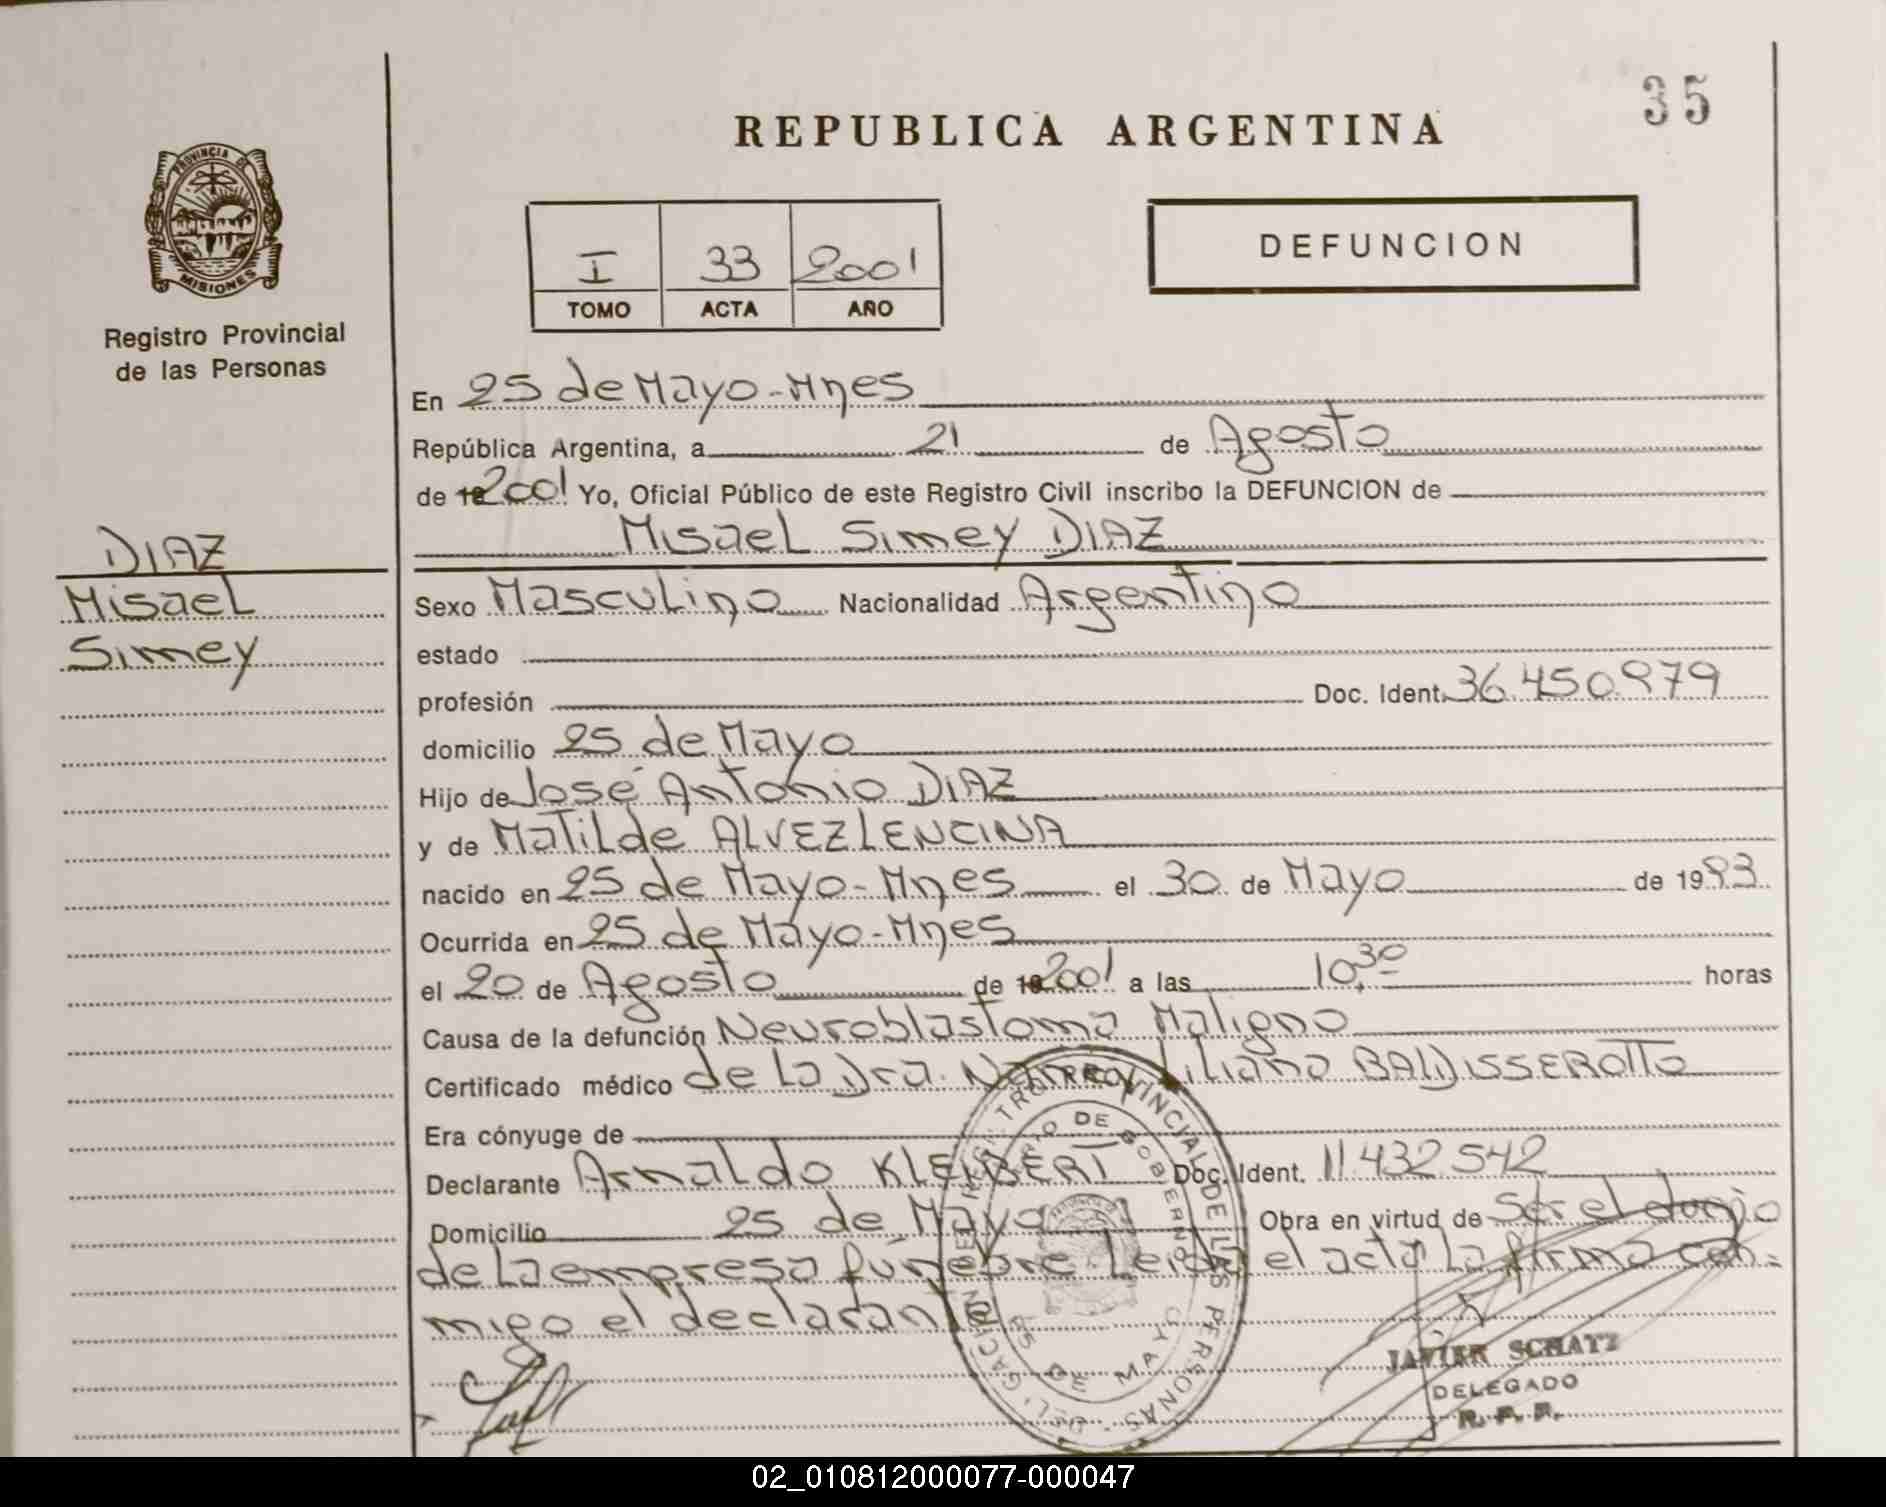 35
REPUBLICA ARGENTINA
PROVINCIA DE
MISIONES
Registro Provincial
de las Personas
I 33 2001
TOMO ACTA AÑO
DEFUNCION
En 25 de Mayo-Mnes
República Argentina, a 21 de Agosto
de 2001 Yo, Oficial Público de este Registro Civil inscribo la DEFUNCION de
Misael Simey DIAZ
DIAZ
Misael
Simey
Sexo Masculino Nacionalidad Argentino
estado
profesión Doc. Ident. 36.450.979
domicilio 25 de Mayo
Hijo de José Antonio DIAZ
y de Matilde ALVEZ LENCINA
nacido en 25 de Mayo-Mnes el 30 de Mayo de 1993
Ocurrida en 25 de Mayo-Mnes
el 20 de Agosto de 2001 a las 10,30 horas
Causa de la defunción Neuroblastoma Maligno
Certificado médico de la Dra. Nancy Liliana BALDISSEROTTO
Era cónyuge de
Declarante Arnaldo KLEIBERT Doc. Ident. 11.432.542
Domicilio 25 de Mayo Obra en virtud de Ser el
de la empresa fúnebre Leida el acta la firma con-
migo el declarante
REGISTRO PROVINCIAL DE LAS PERSONAS
DE GOBIERNO
25 DE MAYO
JAVIER SCHATZ
DELEGADO
R. P. P.
02_010812000077-000047